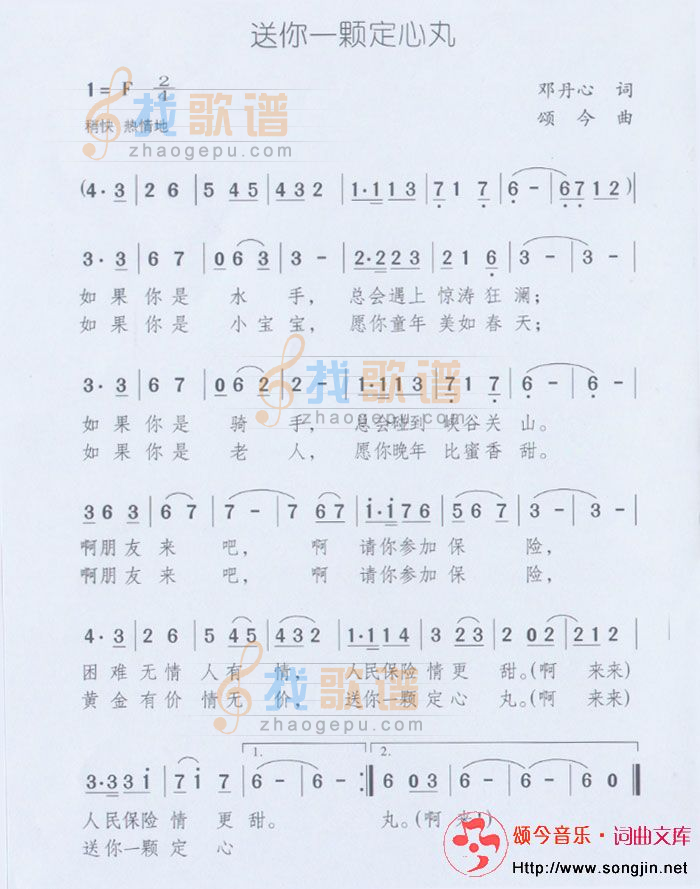 送你一颗定心丸
1=F 2/4
邓丹心 词
稍快 热情地
颂今 曲
(4·3|26|5 45|432|1·113|71 7|6-|6712)|
3·3|67|063|3-|2·223|216|3-|3-|
如果你是 水 手, 总会遇上 惊涛狂 澜;
如果你是 小宝 宝, 愿你童年 美如春 天;
3·3|67|062|2-|1·113|717|6-|6-|
如果你是 骑 手, 总会碰到 峡谷关 山。
如果你是 老 人, 愿你晚年 比蜜香 甜。
363|67|7-|7 67|i·i76|567|3-|3-|
啊朋友来 吧, 啊 请你参加保 险,
啊朋友来 吧, 啊 请你参加保 险,
4·3|26|5 45|432|1·114|3 23|2 02|212|
困难无情 人有 情, 人民保险 情更 甜。(啊 来来)
黄金有价 情无 价, 送你一颗 定心 丸。(啊 来来)
1. 2.
3·33i|7i 7|6-|6-:‖6 03|6-|6-|60‖
人民保险 情 更 甜。 丸。(啊 来!)
送你一颗 定 心
找歌谱
zhaogepu.com
找歌谱
zhaogepu.com
找歌谱
zhaogepu.com
颂今音乐·词曲文库
Http://www.songjin.net